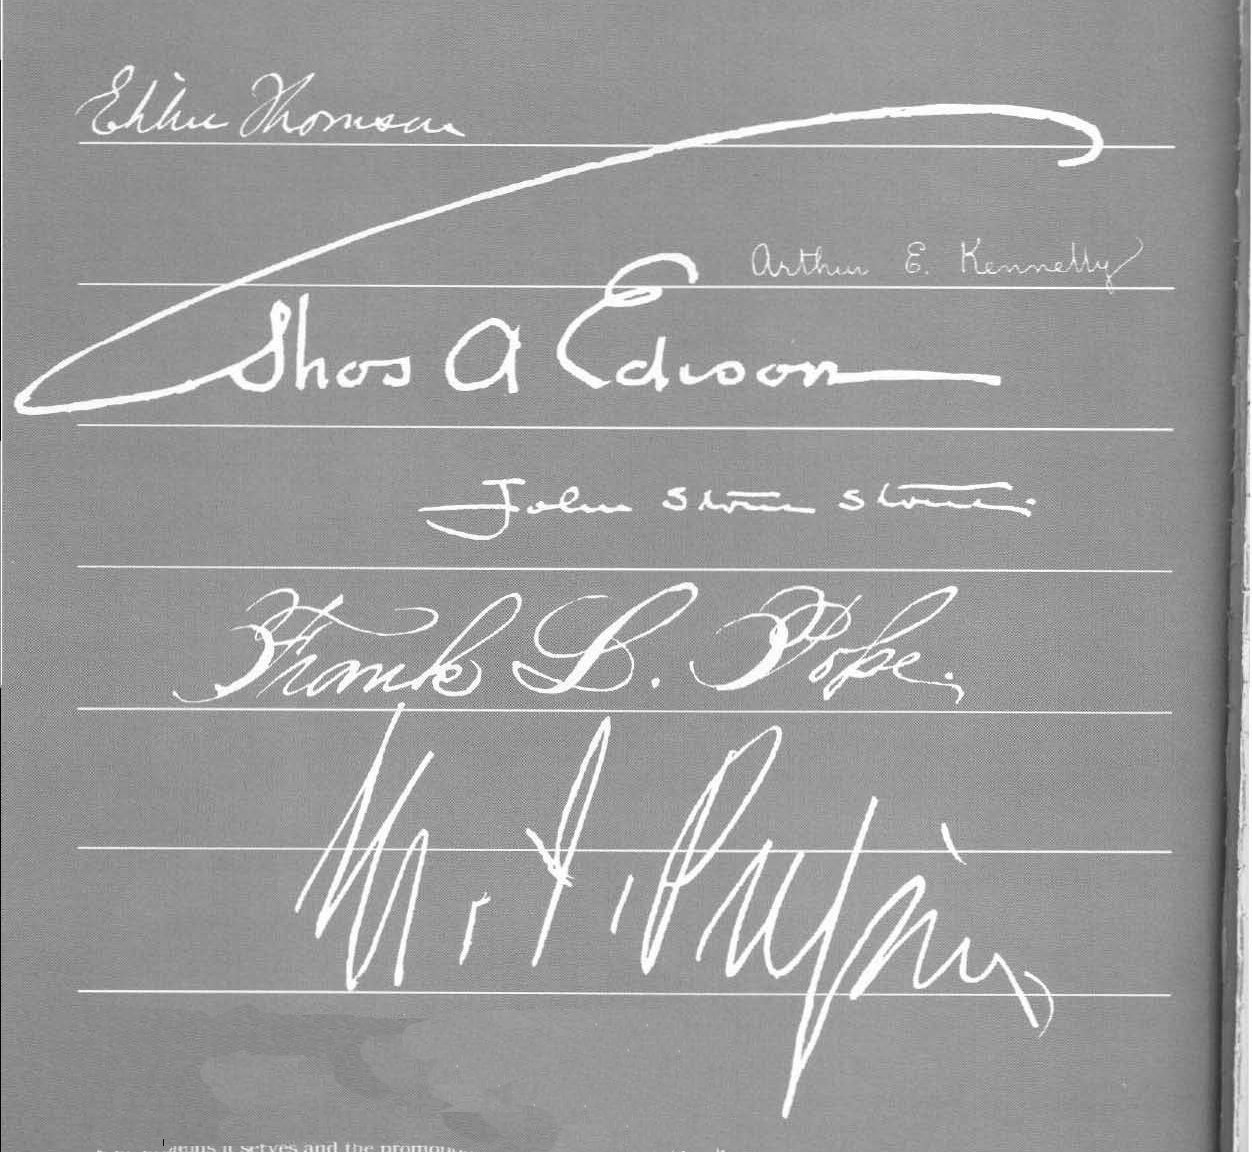 Elihu Thomson
Arthur E. Kennelly
Thos A Edison
John Stone Stone.
Frank L. Pope.
M. I. Pupin
it serves and the